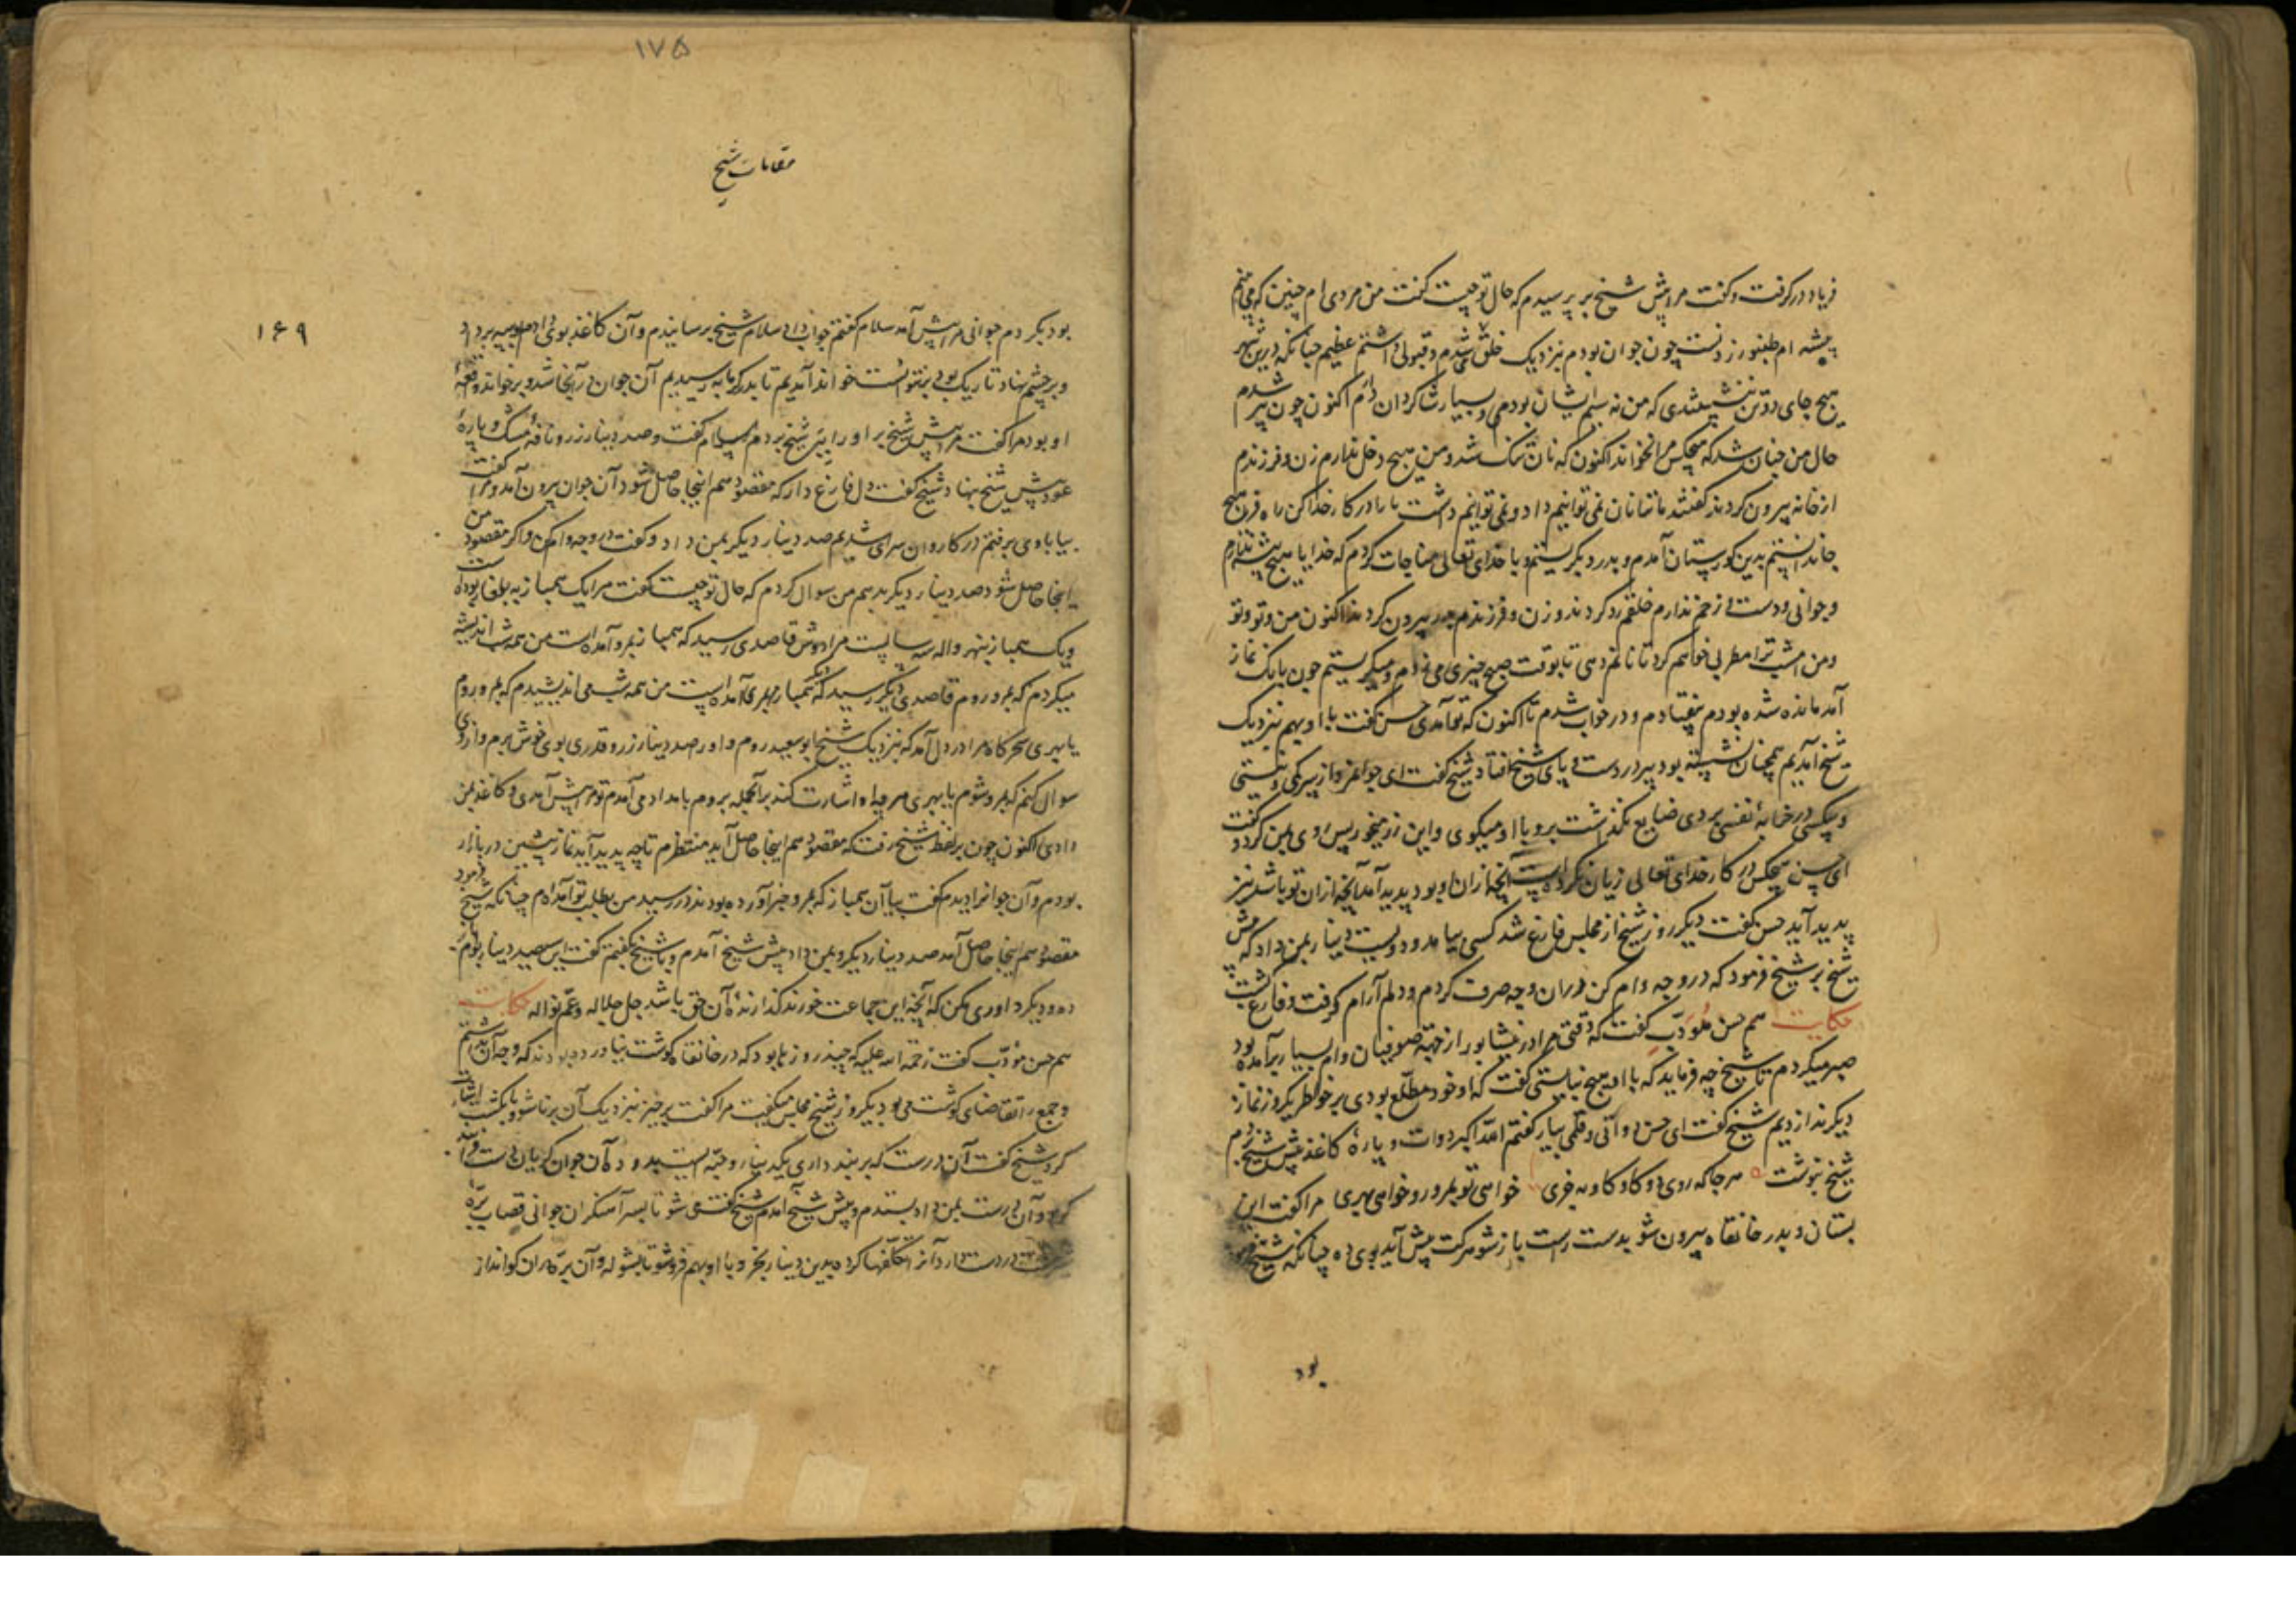 فریاد در گرفت و گفت مرا پیش شیخ بر پرسیدم که حال تو چیست گفت من مردی ام چنین که می بینم
پیشه ام طنبور زدنست چون جوان بودم نزدیک خلق شدم و قبولی داشتم عظیم چنانکه درین شهر
هیچ جای دو تن ننشستندی که من نه سیم ایشان بودمی و بسیار شاگردان دارم اکنون چون پیر شدم
حال من چنان شد که هیچکس مرا نخواند اکنون که نان تنگ شد و من هیچ دخل ندارم زن و فرزندم
از خانه بیرون کردند گفتند ما ترا نان نمی توانیم داد و نمی توانیم داشت ما را در کار خدا کن راه فرا هیچ
جا ندانستم بدین گورستان آمدم و بدرد بگریستم و با خدای تعالی مناجات کردم که خدایا هیچ پیشه ندارم
و جوانی و دست و زخم ندارم خلقم رد کردند و زن و فرزندم بیرون کردند اکنون من و تو و تو
و من امشب ترا مطربی خواهم کرد تا نانم دهی تا بوقت صبح چیزی می زدم و میگریستم چون بانگ نماز
آمد مانده شده بودم بیفتادم و در خواب شدم تا اکنون که تو آمدی حسن گفت با او بهم نزدیک
شیخ آمدیم همچنان نشسته بود پیر در دست و پای شیخ افتاد شیخ گفت ای جوامرد از پیرکی و نیستی
و بیکسی در خرابه نفسی بزدی ضایع نگذاشت برو با او میگوی و این زر میخور پس روی بمن کرد و گفت
ای حسن هیچکس در کار خدای تعالی زیان نکرده است آنچه از آن او بود پدید آمد آنچه از آن تو باشد نیز
پدید آید حسن گفت دیگر روز شیخ از مجلس فارغ شد کسی بیامد و دویست دینار بمن داد که پیش
شیخ بر شیخ فرمود که در وجه وام کن در آن وجه صرف کردم و دلم آرام گرفت و فارغ گشت
حکایت هم حسن مؤدب گفت که وقتی مرا در نیشابور از جهة صوفیان وام بسیار برآمده بود
صبر میکردم تا شیخ چه فرماید که با او هیچ نبایستی گفت که او خود مطلع بودی بر خواطر یکروز نماز
دیگر نداز دیم شیخ گفت ای حسن دواتی و قلمی بیار گفتم الله اکبر دوات و پاره کاغذ پیش شیخ بردم
شیخ بنوشت هر جا که روی دو گاو کاوند و خری خواهی تو بمرو رو و خواهی بهری مرا گفت این
بستان و بدر خانقاه بیرون شو بدست راست باز شو هر کت پیش آید بوی ده چنانکه شیخ
بود
۱۷۵
مقامات شیخ
۱۶۹
بود بکردم جوانی مرا پیش آمد سلام گفتم جواب داد سلام شیخ برسانیدم و آن کاغذ بوی دادم
و بر چشم نهاد تاریک بود بر نتوانست خواند آمدیم تا بدر گرمابه رسیدیم آن جوان در آنجا شد و برخواند واقعه
او بود مرا گفت مرا پیش شیخ بر او را پیش شیخ بردم سلام گفت و صد دینار زر و نافه مشک و پاره
عود پیش شیخ بنهاد شیخ گفت دل فارغ دار که مقصود هم اینجا حاصل شود آن جوان بیرون آمد و مرا گفت
بیا با وی برفتم در کاروان سرای شدیم صد دینار دیگر بمن داد و گفت در وجه وام کن و اگر مقصود من
اینجا حاصل شود صد دینار دیگر بدهم من سوال کردم که حال تو چیست گفت مرا یک همباز به بلغار بوده است
و یک همباز بنهرواله سه سالست مرا دوش قاصدی رسید که همباز بمرو آمده است من همه شب اندیشه
میکردم که بمرو روم قاصدی دیگر رسید که دیگر همباز بهری آمده است من همه شب می اندیشیدم که بمرو روم
یا بهری سحرگاه مرا در دل آمد که نزدیک شیخ ابو سعید روم و او را صد دینار زر و قدری بوی خوش برم و از وی
سوال کنم که بمرو شوم یا بهری هر چه او اشارت کند بر آنجمله بروم بامداد می آمدم تو مرا پیش آمدی و کاغذ بمن
دادی اکنون چون بر لفظ شیخ رفت که مقصود هم اینجا حاصل آید منتظرم تا چه پدید آید نماز پیشین در بازار
بودم و آن جوانرا دیدم گفت بیا آن همباز که بمرو خبر آورده بودند در رسید من بطلب تو آمده ام چنانکه شیخ فرمود
مقصود هم اینجا حاصل آمد صد دینار دیگر و بمن داد پیش شیخ آمدم و با شیخ بگفتم گفت این سیصد دینار بوام باز
ده و دیگر داوری مکن که آنچه این جماعت خورند گذارنده آن حق باشد جل جلاله و عم نواله حکایت
هم حسن مؤدب گفت رحمة الله علیه که چند روز ما بود که در خانقاه گوشت نیاورده بودند که وجه آن نداشتم
و جمع را تقاضای گوشت می بود یکروز شیخ مجلس میگفت مرا گفت برخیز نزدیک آن برنا شو و بانگشت اشارت
کرد شیخ گفت آن درست که بر بند داری یکدینار و حبه است بده آن جوان گریان دست فرا
کرد و آن درست بمن داد بستدم و پیش شیخ آمدم شیخ گفت شو تا بسر آهنگران جوانی قصاب بره
در دست دارد آنرا تکلفها کرده بدین دینار بخر و با او بهم فروشو تا بشوله و آن بره بدان گو انداز